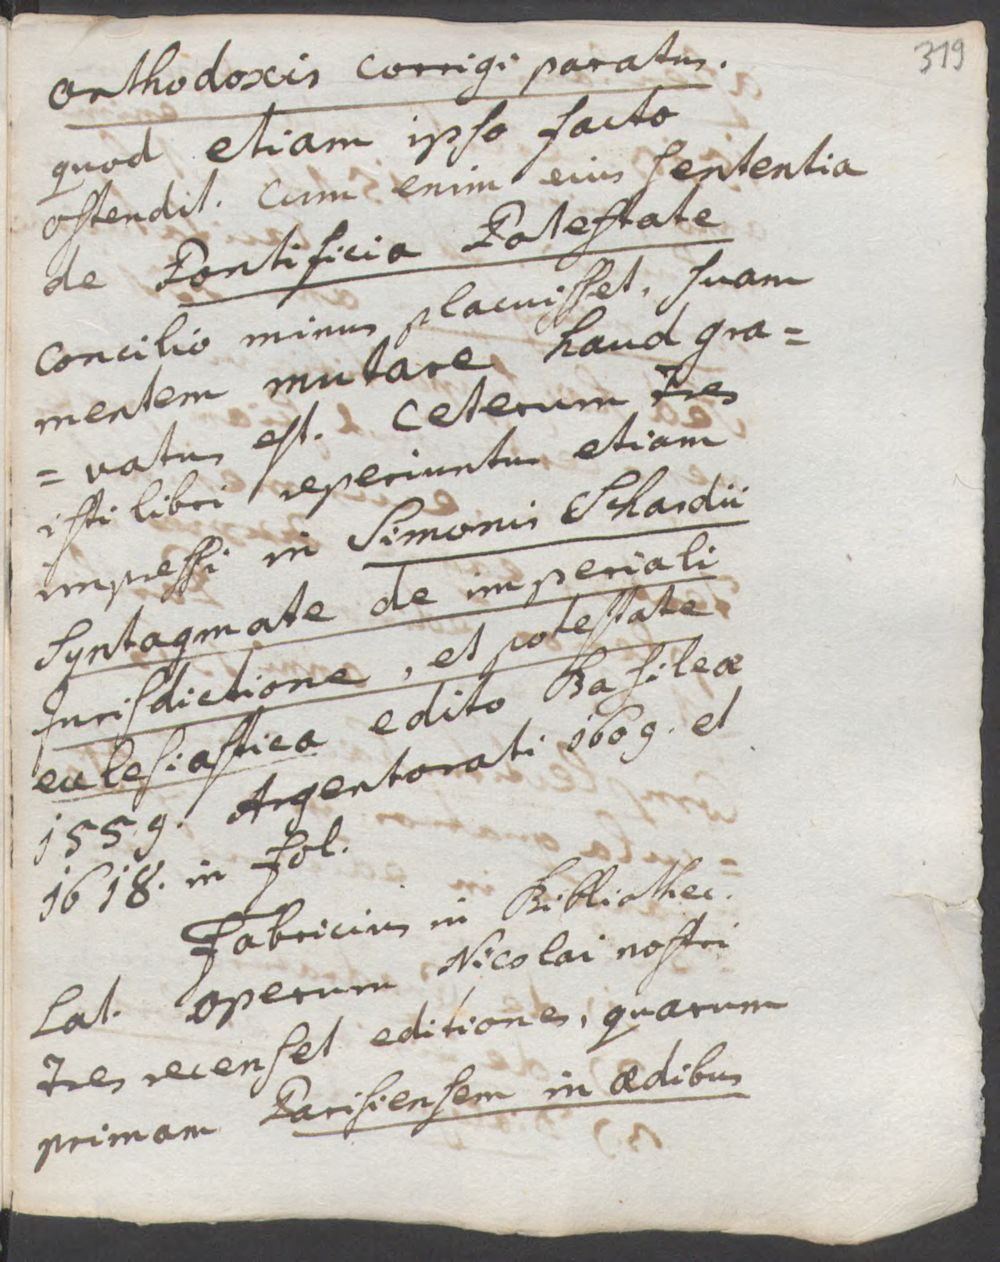 319
orthodoxis corrigi paratus.
quod etiam ipso facto
ostendit. Cum enim eius sententia
de Pontificia Potestate
concilio minus placuisset, suam
mentem mutare haud gra=
=vatus est. Ceterum tres
isti libri reperiuntur etiam
impressi in Simonis Schardii
Syntagmate de imperiali
jurisdictione, et potestate
ecclesiastica edito Basileæ
1559. Argentorati 1609. et
1618. in fol.
Fabricius in Bibliothec.
Lat. operum Nicolai nostri
tres recenset editiones, quarum
primam Parisiensem in ædibus